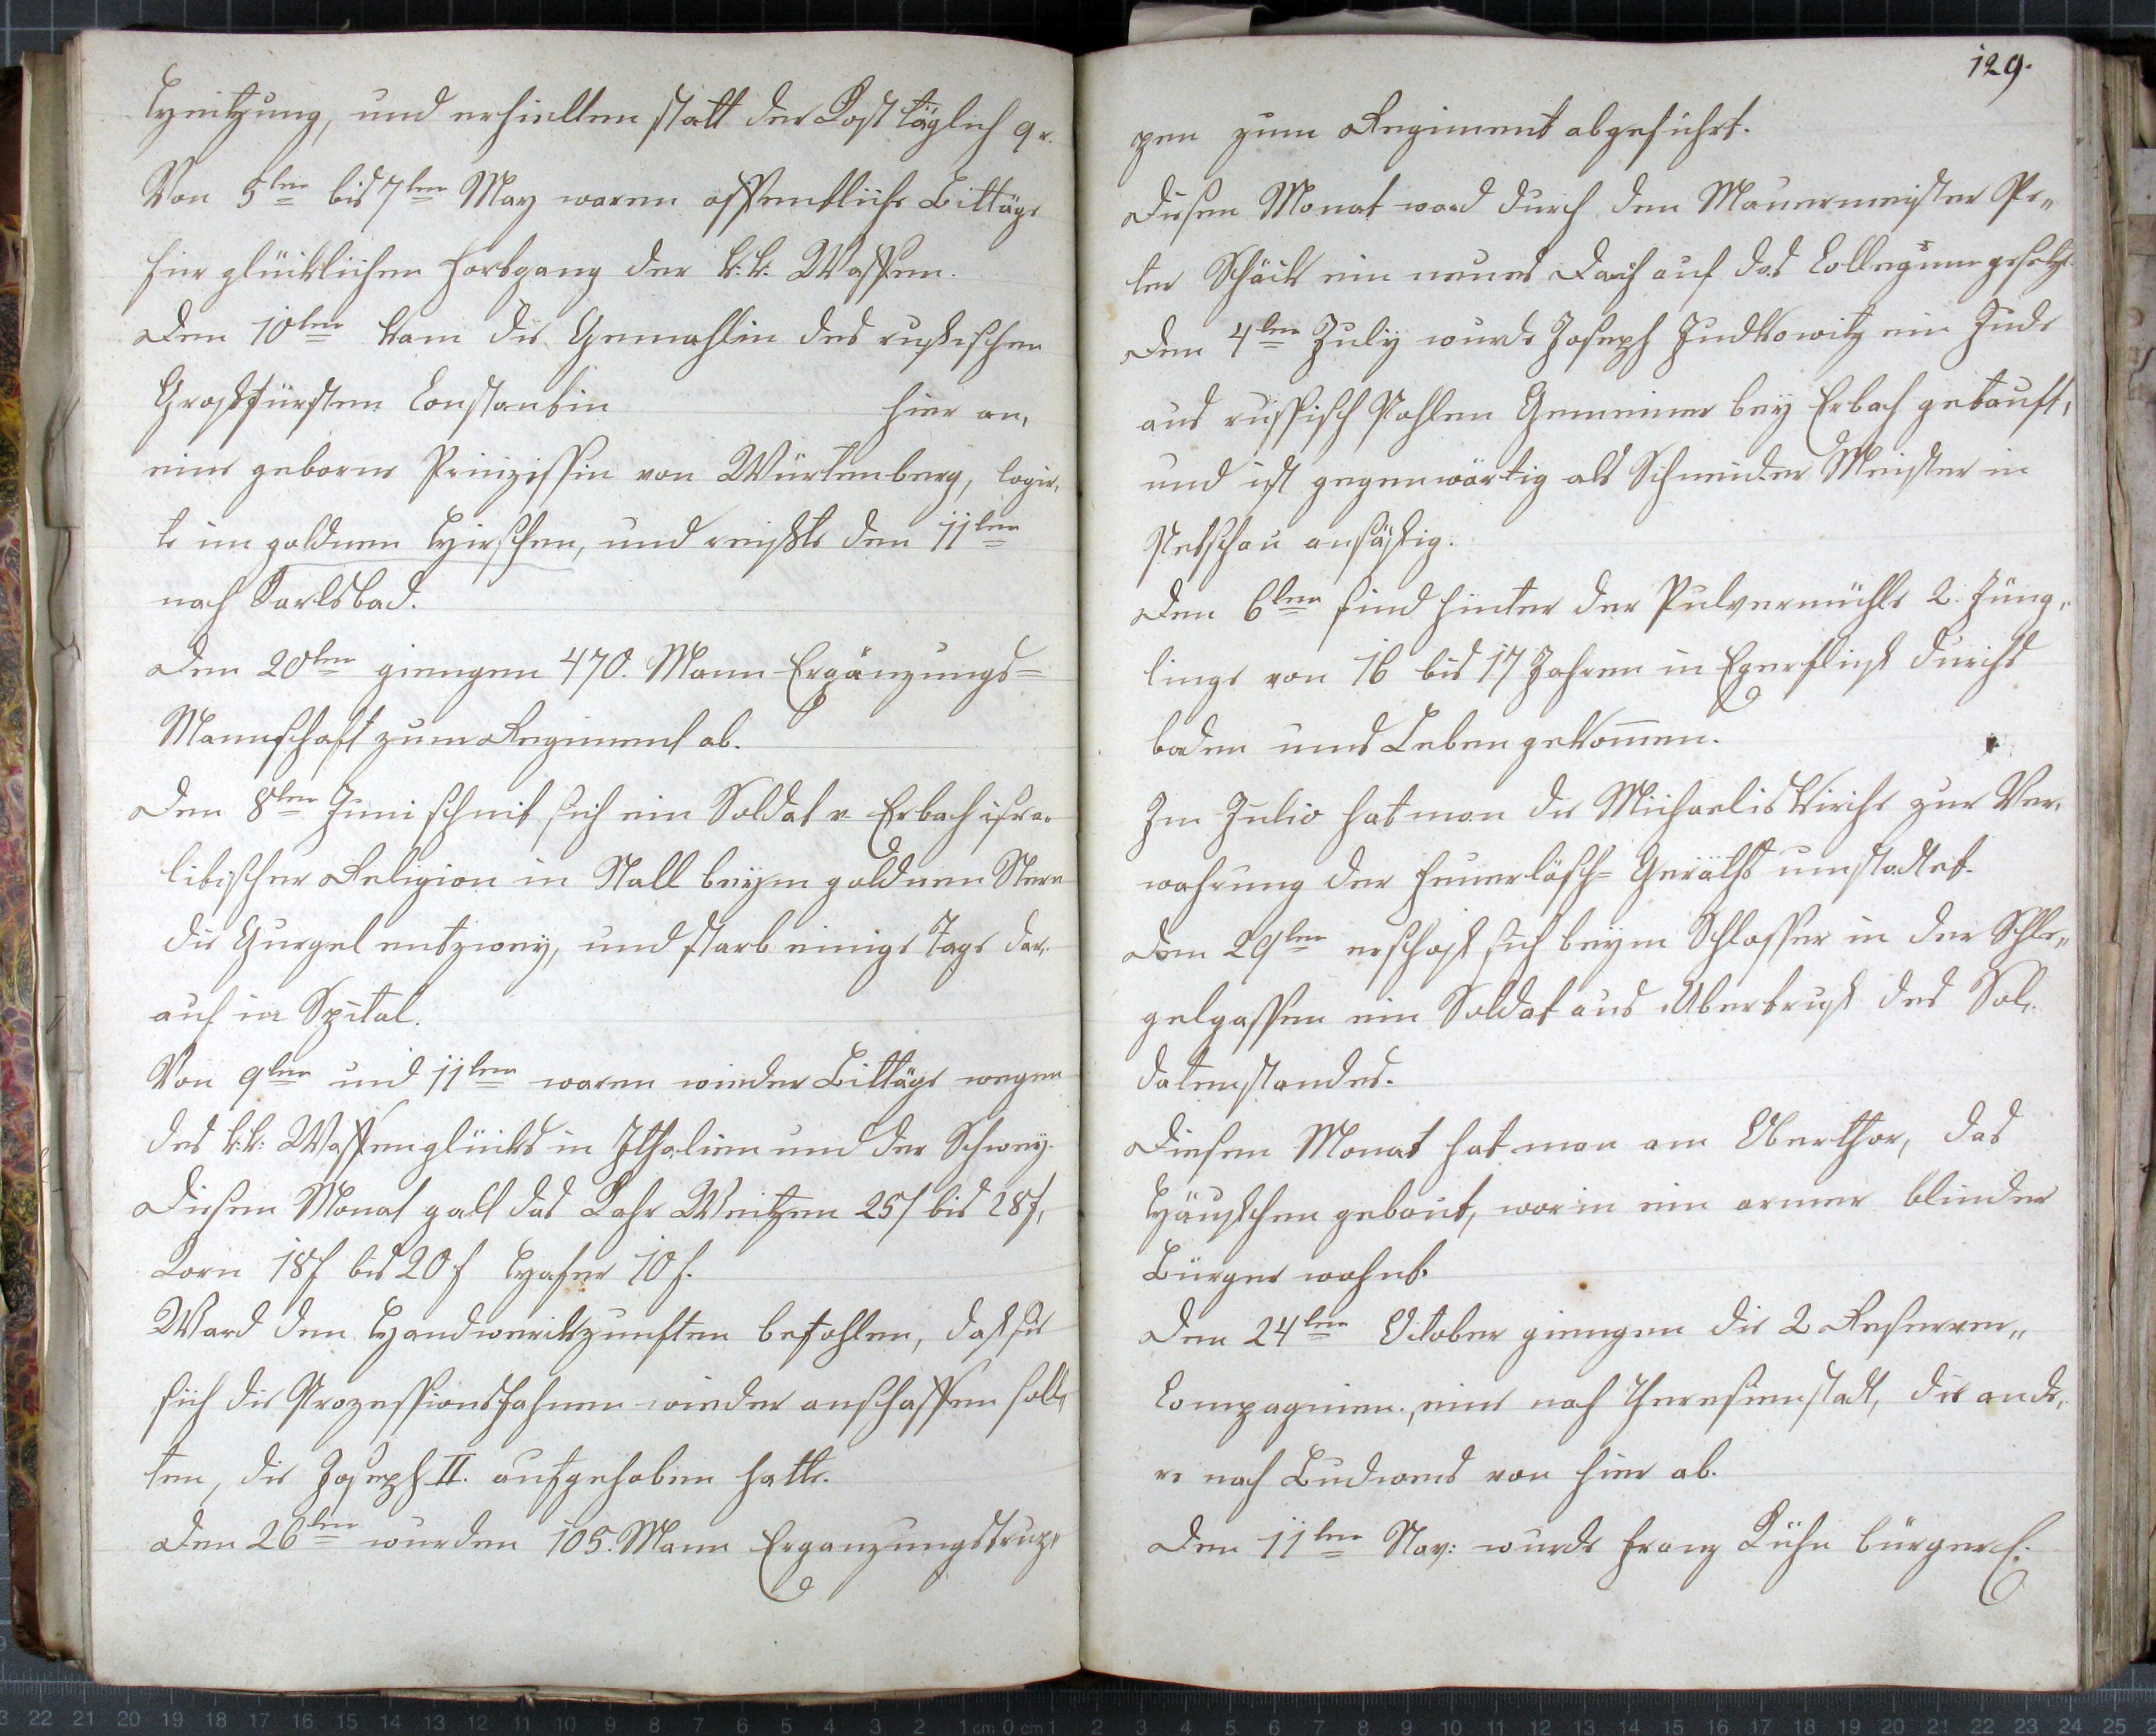 Heitzung, und erhielten statt der Kost täglich 9 x.
Von 5ten bis 7ten May waren offentliche Bittäge
für glücklichen Fortgang der k: k: Waffen.
Den 10ten kam die Gemahlin des rußischen
Großfürsten Constantin hier an,
eine geborne Prinzessin von Würtemberg, logir„
te im goldnen Hirschen, und reißte den 11ten
nach Karlsbad.
Den 20ten giengen 470. Mann Ergänzungs=
Mannschaft zum Regiment ab.
Den 8ten Juni schnit sich ein Soldat v Erbach isra„
litischer Religion in Stall beym goldnen Stern
die Gurgel entzwey, und starb einige Tage dar„
auf im Spital.
Von 9ten und 11ten waren wieder Bittäge wegen
des k: k: Waffenglücks in Ithalien und der Schweiz.
Diesen Monat galt das Kahr Weitzen 25f bis 28f,
Korn 18f bis 20f Hafer 10f.
Ward den Handwerkszunften befohlen, daß sie
sich die Prozessionsfahnen wieder anschaffen soll„
ten, die Joseph II. aufgehoben hatte.
Den 26ten wurden 105. Mann Erganzungstrup„
129.
pen zum Regiment abgeführt.
Diesen Monat ward durch den Mauermeister Pe„
ter Schäck ein neues Dach auf das Collegium gesetzt.
Den 4ten July wurde Joseph Judkowitz ein Jude
aus russisch Pohlen Gemeiner bey Erbach getauft,
und ist gegenwärtig als Schneider Meister in
Petschau ansäßig.
Den 6ten sind hinter der Pulvermühle 2. Jüng„
linge von 16 bis 17 Jahren in Egerfluß durchs
baden ums Leben gekommen.
Im Julio hat man die Michaeliskirche zur Ver„
wahrung der Feuerlösch= Geräths umstaltet.
Den 29ten erschoß sich beym Schlosser in der Schle„
gelgassen ein Soldat aus Überdruß des Sol„
datenstandes.
Diesen Monat hat man am Oberthor, das
Häuschen gebaut, worin ein armer blinder
Bürger wohnt.
Den 24ten October giengen die 2 Reserven„
Compagnien, eine nach Theresienstadt, die ande„
re nach Budweis von hier ab.
Den 11ten Nov: wurde Franz Kuhn bürgerl.